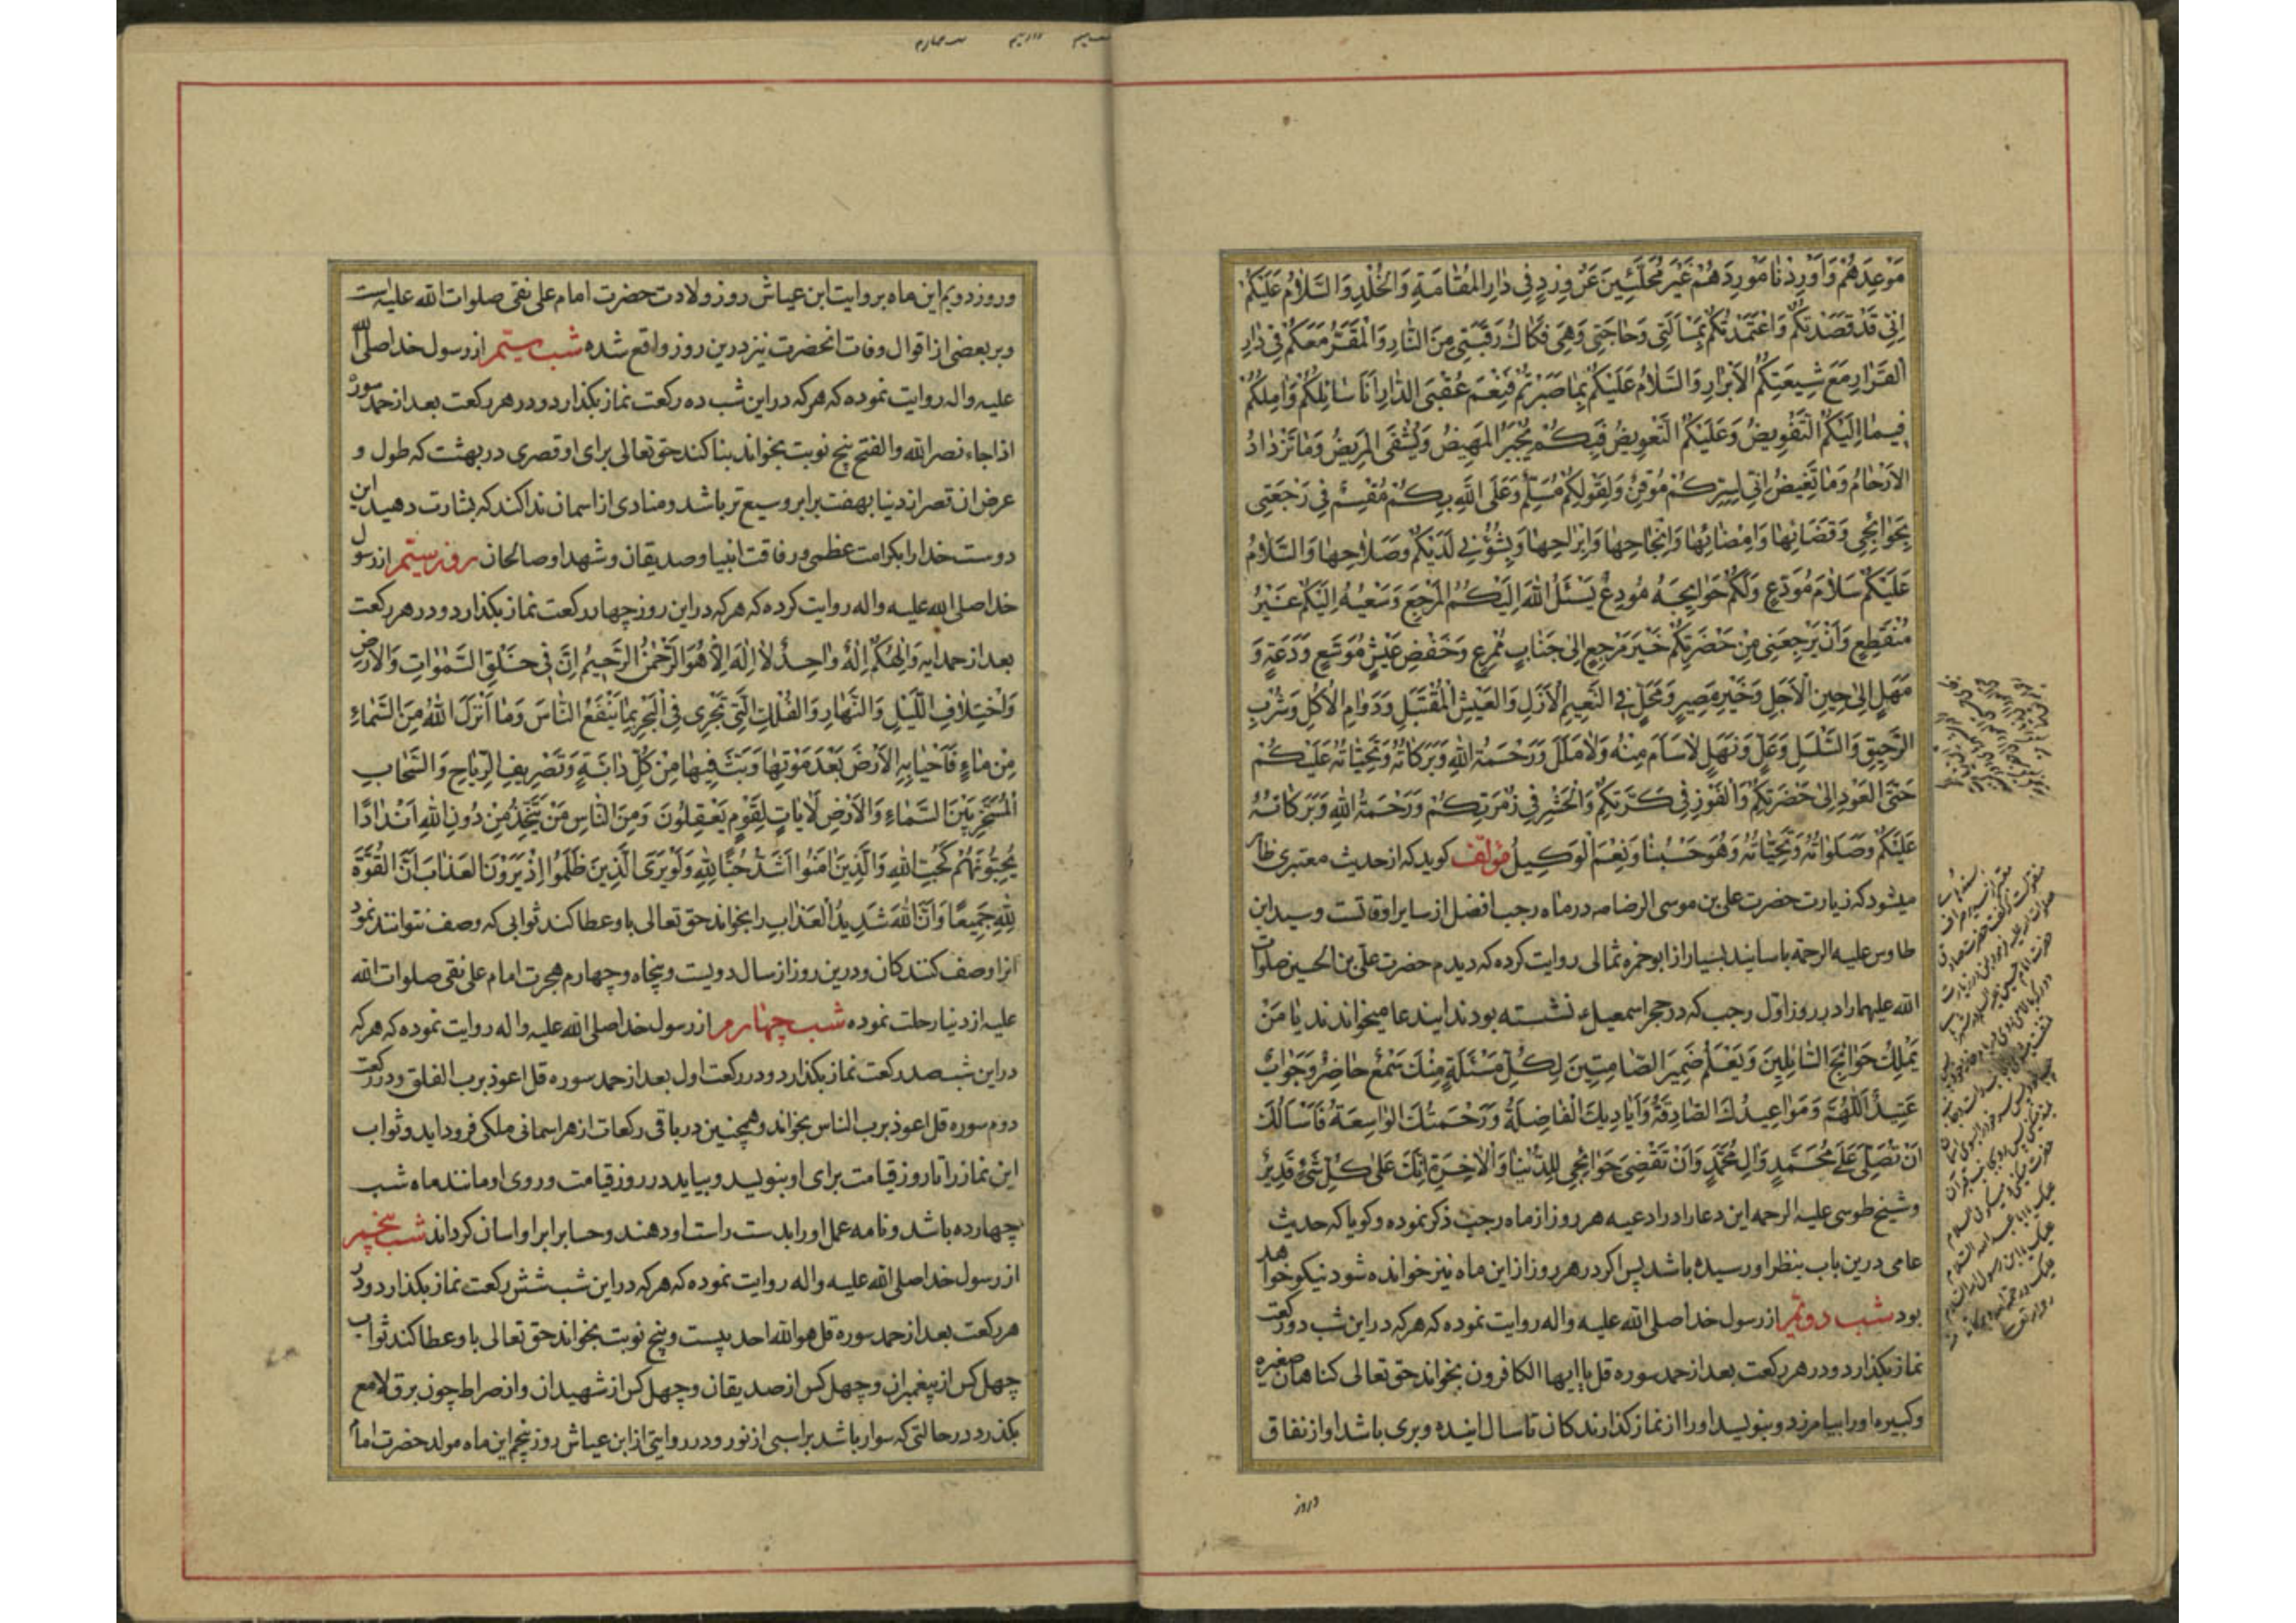 مَوْعِدَهُمْ وَاَوْرِدْنَا مَوْرِدَهُمْ غَيْرَ مُحَلَّئِينَ عَنْ وِرْدٍ فِي دَارِ الْمُقَامَةِ وَالْخُلْدِ وَالسَّلَامُ عَلَيْكُمْ
اِنِّي قَدْ قَصَدْتُكُمْ وَاعْتَمَدْتُكُمْ بِمَسْاَلَتِي وَحَاجَتِي وَهِيَ فَكَاكُ رَقَبَتِي مِنَ النَّارِ وَالْمَقَرُّ مَعَكُمْ فِي دَارِ
الْقَرَارِ مَعَ شِيعَتِكُمُ الْاَبْرَارِ وَالسَّلَامُ عَلَيْكُمْ بِمَا صَبَرْتُمْ فَنِعْمَ عُقْبَى الدَّارِ اَنَا سَائِلُكُمْ وَامِلُكُمْ
فِيمَا اِلَيْكُمُ التَّفْوِيضُ وَعَلَيْكُمُ التَّعْوِيضُ فَبِكُمْ يُجْبَرُ الْمَهِيضُ وَيُشْفَى الْمَرِيضُ وَمَا تَزْدَادُ
الْاَرْحَامُ وَمَا تَغِيضُ اِنِّي لِسِرِّكُمْ مُوقِنٌ وَلِقَوْلِكُمْ مُسَلِّمٌ وَعَلَى اللّٰهِ بِكُمْ مُقْسِمٌ فِي رَجْعَتِي
بِحَوَائِجِي وَقَضَائِهَا وَاِمْضَائِهَا وَاِنْجَاحِهَا وَاِبْرَاحِهَا وَبِشُؤُنِي لَدَيْكُمْ وَصَلَاحِهَا وَالسَّلَامُ
عَلَيْكُمْ سَلَامَ مُوَدِّعٍ وَلَكُمْ حَوَائِجَهُ مُودِعٌ يَسْئَلُ اللّٰهَ اِلَيْكُمُ الْمَرْجِعَ وَسَعْيُهُ اِلَيْكُمْ غَيْرُ
مُنْقَطِعٍ وَاَنْ يَرْجِعَنِي مِنْ حَضْرَتِكُمْ خَيْرَ مَرْجِعٍ اِلَى جَنَابٍ مُمْرِعٍ وَخَفْضِ عَيْشٍ مُوَسَّعٍ وَدَعَةٍ وَ
مَهَلٍ اِلَى حِينِ الْاَجَلِ وَخَيْرِ مَصِيرٍ وَمَحَلٍّ فِي النَّعِيمِ الْاَزَلِ وَالْعَيْشِ الْمُقْتَبَلِ وَدَوَامِ الْاُكُلِ وَشُرْبِ
الرَّحِيقِ وَالسَّلْسَلِ وَعَلٍّ وَنَهَلٍ لَا سَاَمَ مِنْهُ وَلَا مَلَلَ وَرَحْمَةُ اللّٰهِ وَبَرَكَاتُهُ وَتَحِيَّاتُهُ عَلَيْكُمْ
حَتَّى الْعَوْدِ اِلَى حَضْرَتِكُمْ وَالْفَوْزِ فِي كَرَّتِكُمْ وَالْحَشْرِ فِي زُمْرَتِكُمْ وَرَحْمَةُ اللّٰهِ وَبَرَكَاتُهُ
عَلَيْكُمْ وَصَلَوَاتُهُ وَتَحِيَّاتُهُ وَهُوَ حَسْبُنَا وَنِعْمَ الْوَكِيلُ مؤلف کوید که از حدیث معتبری ظاهر
میشود که زیارت حضرت علی بن موسی الرضا صه در ماه رجب افضل از سایر اوقاتست و سید ابن
طاوس علیه الرحمة باسانید بسیار از ابو حمزه ثمالی روایت کرده که دیدم حضرت علی بن الحسین صلوات
الله علیهما را در روز اول رجب که در حجر اسمعیل نشسته بودند ایندعا میخواندند یَا مَنْ
يَمْلِكُ حَوَائِجَ السَّائِلِينَ وَيَعْلَمُ ضَمِيرَ الصَّامِتِينَ لِكُلِّ مَسْئَلَةٍ مِنْكَ سَمْعٌ حَاضِرٌ وَجَوَابٌ
عَتِيدٌ اَللّٰهُمَّ وَمَوَاعِيدُكَ الصَّادِقَةُ وَاَيَادِيكَ الْفَاضِلَةُ وَرَحْمَتُكَ الْوَاسِعَةُ فَاَسْاَلُكَ
اَنْ تُصَلِّيَ عَلَى مُحَمَّدٍ وَالِ مُحَمَّدٍ وَاَنْ تَقْضِيَ حَوَائِجِي لِلدُّنْيَا وَالْاٰخِرَةِ اِنَّكَ عَلَى كُلِّ شَيْءٍ قَدِيرٌ
و شیخ طوسی علیه الرحمه این دعا را در ادعیه هر روز از ماه رجب ذکر نموده و کویا که حدیث
عامی درین باب بنظر او رسیده باشد پس اکر در هر روز از این ماه نیز خوانده شود نیکو خواهد
بود شب دویم از رسول خدا صلی الله علیه واله روایت نموده که هر که در این شب دو رکعت
نماز بکذارد و در هر رکعت بعد از حمد سوره قل یا ایها الکافرون بخواند حق تعالی کناهان صغیره
و کبیره او را بیامرزد و بنویسد او را از نماز کذارندکان تا سال اینده و بری باشد او از نفاق
و روز
و روز دویم این ماه بروایت ابن عیاش روز ولادت حضرت امام علی نقی صلوات الله علیه است
و بر بعضی از اقوال وفات انحضرت نیز درین روز واقع شده شب سیّم از رسول خدا صلی الله
علیه واله روایت نموده که هر که در این شب ده رکعت نماز بکذارد و در هر رکعت بعد از حمد سوره
اذا جاء نصر الله والفتح پنج نوبت بخواند بنا کند حق تعالی برای او قصری در بهشت که طول و
عرض ان قصر از دنیا بهفت برابر وسیع تر باشد و منادی از اسمان ندا کند که بشارت دهید این
دوست خدا را بکرامت عظمی و رفاقت انبیا و صدیقان و شهدا و صالحان روز سیّم از رسول
خدا صلی الله علیه واله روایت کرده که هر که در این روز چهار رکعت نماز بکذارد و در هر رکعت
بعد از حمد ایه وَاِلٰهُكُمْ اِلٰهٌ وَاحِدٌ لَا اِلٰهَ اِلَّا هُوَ الرَّحْمٰنُ الرَّحِيمُ اِنَّ فِي خَلْقِ السَّمٰوَاتِ وَالْاَرْضِ
وَاخْتِلَافِ اللَّيْلِ وَالنَّهَارِ وَالْفُلْكِ الَّتِي تَجْرِي فِي الْبَحْرِ بِمَا يَنْفَعُ النَّاسَ وَمَا اَنْزَلَ اللّٰهُ مِنَ السَّمَاءِ
مِنْ مَاءٍ فَاَحْيَا بِهِ الْاَرْضَ بَعْدَ مَوْتِهَا وَبَثَّ فِيهَا مِنْ كُلِّ دَابَّةٍ وَتَصْرِيفِ الرِّيَاحِ وَالسَّحَابِ
الْمُسَخَّرِ بَيْنَ السَّمَاءِ وَالْاَرْضِ لَاٰيَاتٍ لِقَوْمٍ يَعْقِلُونَ وَمِنَ النَّاسِ مَنْ يَتَّخِذُ مِنْ دُونِ اللّٰهِ اَنْدَادًا
يُحِبُّونَهُمْ كَحُبِّ اللّٰهِ وَالَّذِينَ اٰمَنُوا اَشَدُّ حُبًّا لِلّٰهِ وَلَوْ يَرَى الَّذِينَ ظَلَمُوا اِذْ يَرَوْنَ الْعَذَابَ اَنَّ الْقُوَّةَ
لِلّٰهِ جَمِيعًا وَاَنَّ اللّٰهَ شَدِيدُ الْعَذَابِ را بخواند حق تعالی باو عطا کند ثوابی که وصف نتوانند نمود
انرا وصف کنندکان و درین روز از سال دویست و پنجاه و چهارم هجرت امام علی نقی صلوات الله
علیه از دنیا رحلت نموده شب چهارم از رسول خدا صلی الله علیه واله روایت نموده که هر که
در این شب صد رکعت نماز بکذارد و در رکعت اول بعد از حمد سوره قل اعوذ برب الفلق و در رکعت
دوم سوره قل اعوذ برب الناس بخواند و همچنین در باقی رکعات از هر اسمانی ملکی فرود اید و ثواب
این نماز را تا روز قیامت برای او بنویسد و بیاید در روز قیامت و روی او مانند ماه شب
چهارده باشد و نامه عمل او را بدست راست او دهند و حساب را بر او اسان کرداند شب پنجم
از رسول خدا صلی الله علیه واله روایت نموده که هر که در این شب شش رکعت نماز بکذارد و در
هر رکعت بعد از حمد سوره قل هو الله احد بیست و پنج نوبت بخواند حق تعالی باو عطا کند ثواب
چهل کس از پیغمبران و چهل کس از صدیقان و چهل کس از شهیدان و از صراط چون برق لامع
بکذرد در حالتی که سوار باشد بر اسبی از نور و در روایتی از ابن عیاش روز پنجم این ماه مولد حضرت امام